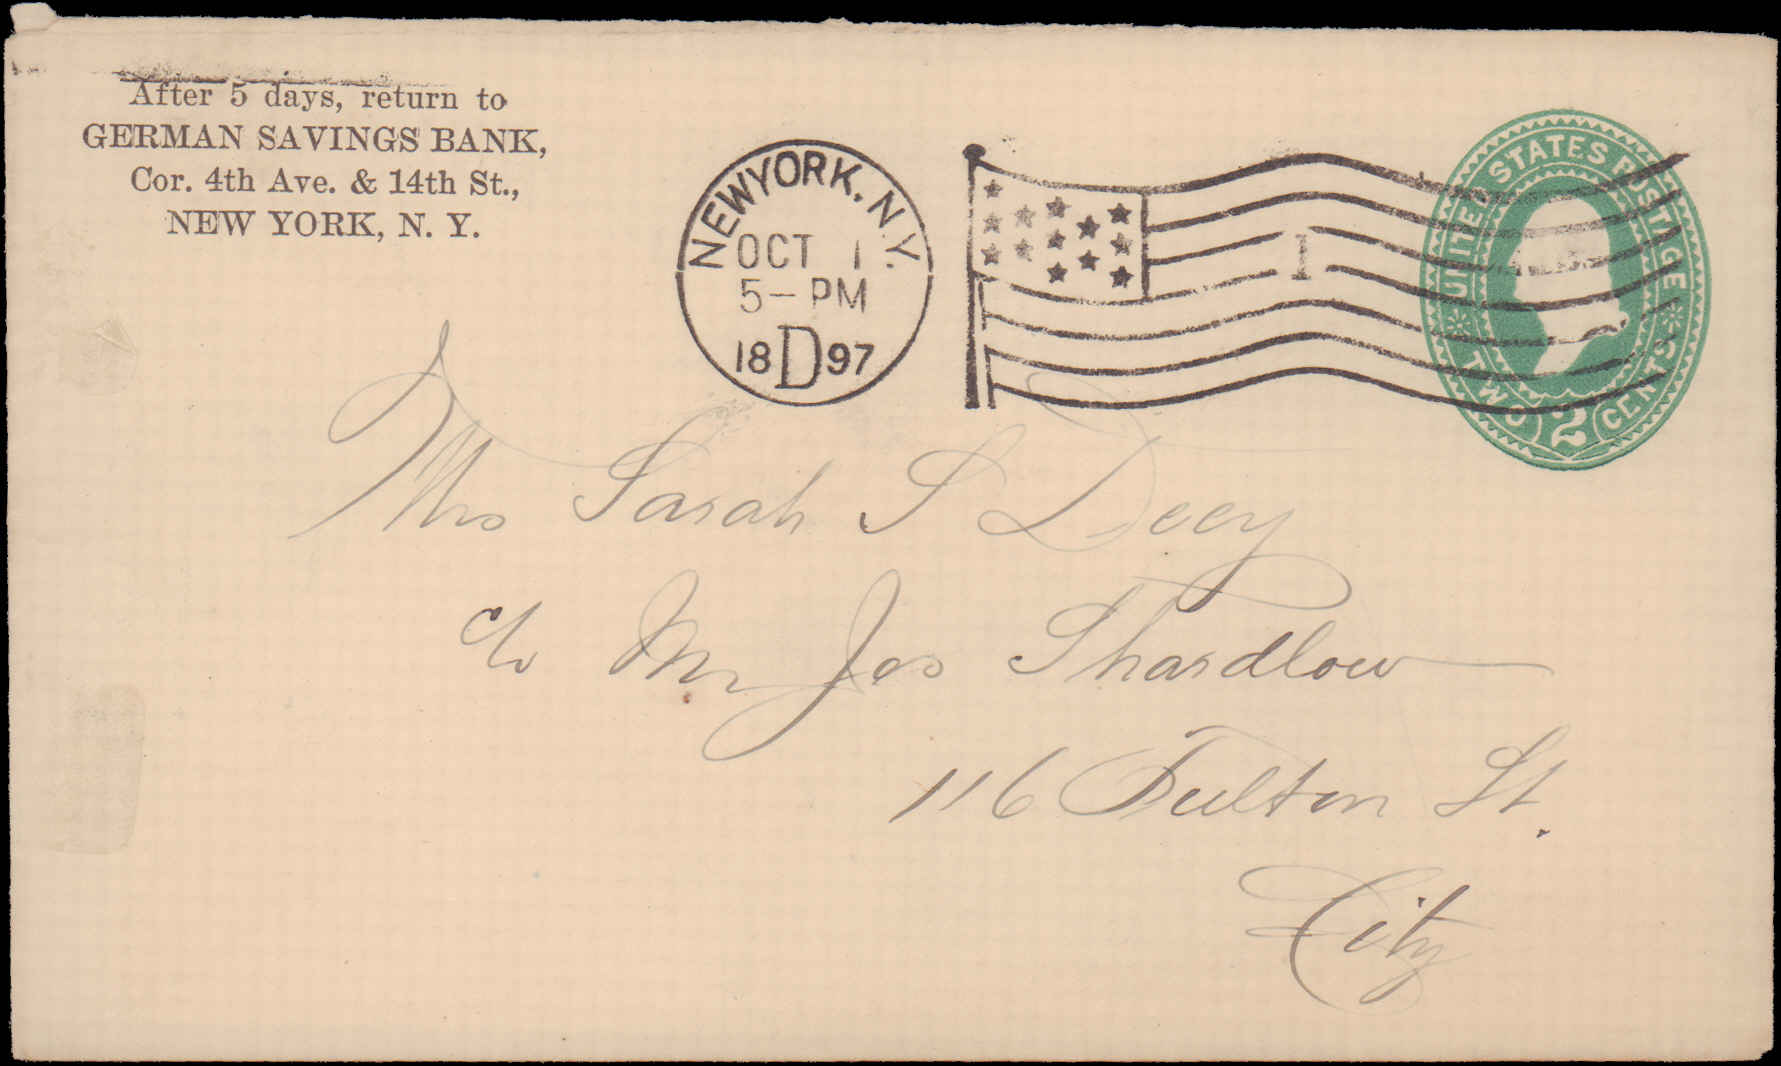 After 5 days, return to
GERMAN SAVINGS BANK,
Cor. 4th Ave. & 14th St.,
NEW YORK, N. Y.
NEW YORK, N.Y.
OCT 1
5-PM
18 D 97
1
UNITED STATES POSTAGE
TWO 2 CENTS
Mrs Sarah S Deey
c/o Mr Jos Shardlow
116 Fulton St.
City